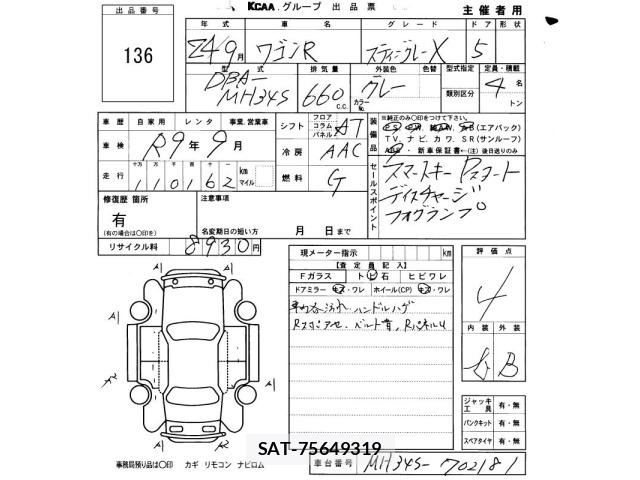 KCAA グループ 出品票 主催者用
出品番号
136
年式 車名 グレード ドア 形状
24/9月 ワゴンR スティングレーX 5
型式 排気量 外装色 色替 型式指定 定員・積載
DBA-MH34S 660 C.C. グレー カラーNo. 類別区分 4名 トン
車歴 自家用 レンタ 事業,営業車
シフト フロア コラム パネル AT
装備品
※純正のみ○印をつけて下さい。
(エアバック)
TV、ナビ、カワ、SR(サンルーフ)
・新車保証書←(注)後日送りのみ
車検 R9年9月
冷房 AAC
走行 十万 万 千 百 十 一
110162 km マイル
燃料 G
セールスポイント
スマートキー Pスタート
ディスチャージ
フォグランプ
修復歴 箇所
有
(有の場合は○印を)
注意事項
名変期日の短い方 月 日まで
リサイクル料 8930円
現メーター指示 km
【査定員記入】
Fガラス トビ石 ヒビワレ
ドアミラー キズ・ワレ ホイール(CP) キズ・ワレ
ハンドルハゲ
評価点
4
内装 外装
B
ジャッキ工具 有・無
パンクキット 有・無
スペアタイヤ 有・無
A1
A1
A1
A1
A2
SAT-75649319
事務局預り品は○印 カギ リモコン ナビロム
車台番号 MH34S-702181